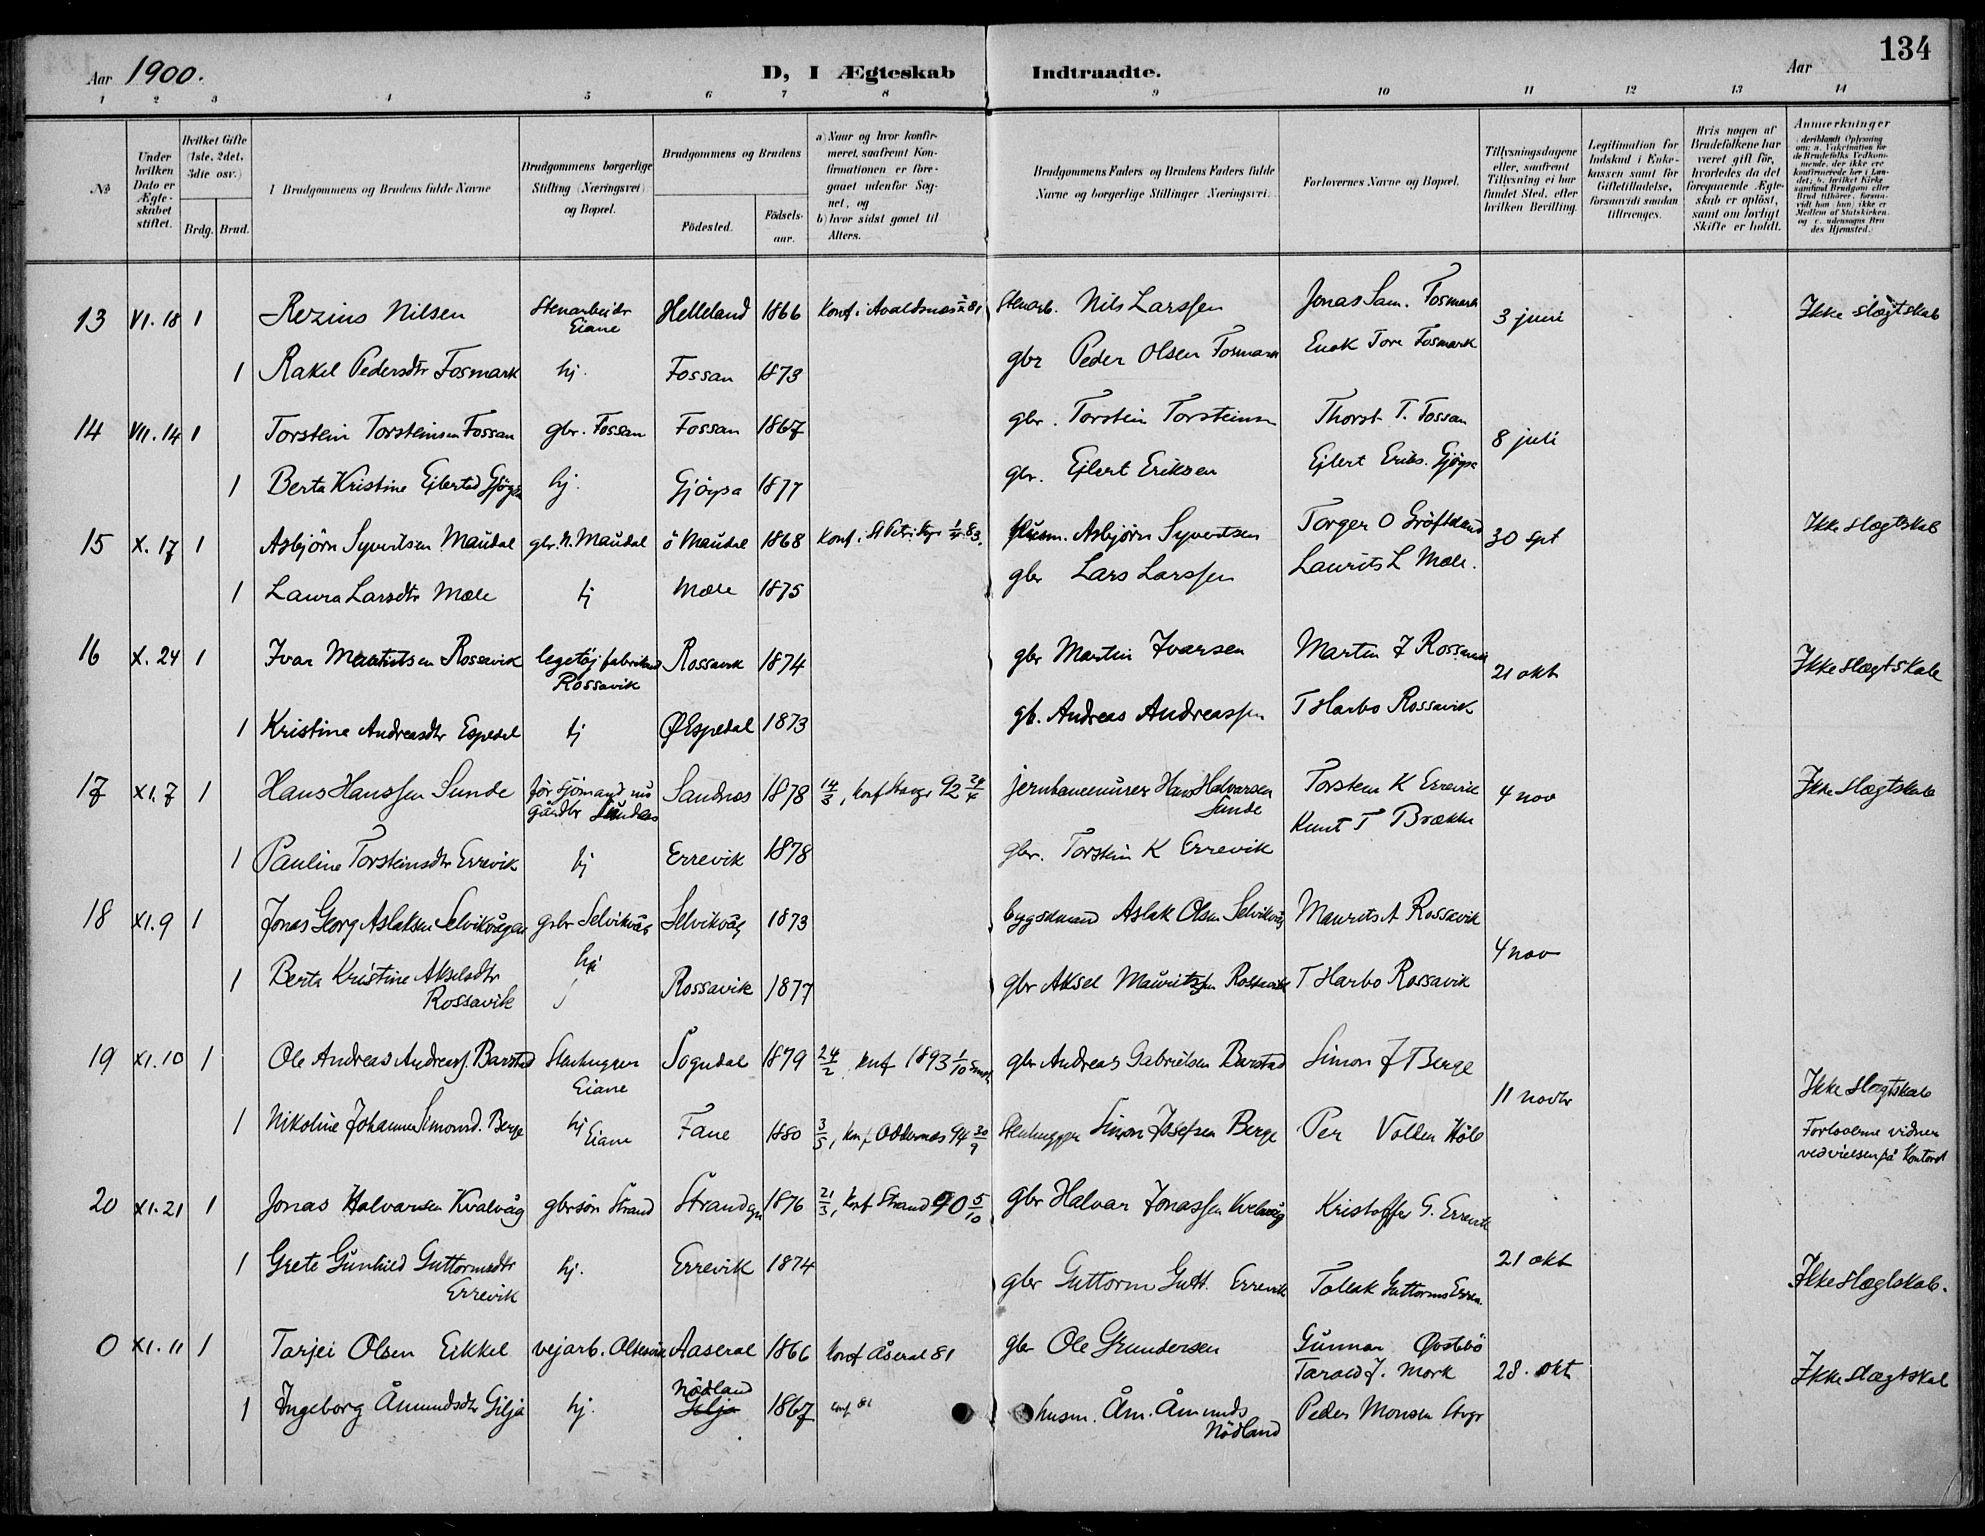 134
Aar 1900. D, I Ægteskab Indtraadte. Aar
1 2 3 4 5 6 7 8 9 10 11 12 13 14
No
Under hvilken Dato er Ægteskabet stiftet.
Hvilket Gifte (1ste, 2det, 3die osv.)
Brdg. Brud.
Brudgommens og Brudens fulde Navne
Brudgommens borgerlige Stilling (Næringsvei) og Bopæl.
Brudgommens og Brudens
Födested. Födsels-aar.
a) Naar og hvor konfirmeret, saafremt Konfirmationen er foregaaet udenfor Sognet, og
b) hvor sidst gaaet til Alters.
Brudgommens Faders og Brudens Faders fulde Navne og borgerlige Stillinger (Næringsvei).
Forlovernes Navne og Bopæl.
Tillysningsdagene eller, saafremt Tillysning ei har fundet Sted, efter hvilken Bevilling.
Legitimation for Indskud i Enkekassen samt for Giftetilladelse, forsaavidt saadan tiltrænges.
Hvis nogen af Brudefolkene har været gift för, hvorledes da det foregaaende Ægteskab er oplöst, samt om lovligt Skifte er holdt.
Anmærkninger
13 VI. 18 1 Rezius Nilsen Stenarbeider Eiane Helleland 1866 Konf. i Avaldsnæs 81 Stenarb. Nils Larssen Jonas Sam. Fosmark 3 juni Ikke slægtskab
1 Rakel Pedersdtr Fosmark hj. Fossan 1873 gbr Peder Olsen Fosmark Enok Tore Fosmark
14 VII. 14 1 Torstein Torsteinsen Fossan gbr. Fossan Fossan 1867 gbr. Torstein Torsteinsen Thorst T. Fossan 8 juli
1 Berta Kristine Ejlertsd Gjøysa hj. Gjøysa 1877 gbr. Ejlert Eriksen Ejlert Eriks. Gjöysa
15 X. 17 1 Asbjörn Syvertsen Maudal gbr. N. Maudal ö Maudal 1868 Konf. i St Petri 83. Husm. Asbjørn Syvertsen Torger O 30 spt Ikke slægtskab
1 Laura Larsdtr Mæle hj Mæle 1875 gbr Lars Larssen Laurits L Mæle.
16 X. 24 1 Ivar Rossavik legetøjfabrikant Rossavik Rossavik 1874 gbr Martin Ivarsen Martin I Rossavik 21 okt Ikke slægtskab
1 Kristine Andreasdtr Espedal hj Ø Espedal 1873 gb. Andreas Andreassen T Harbo Rossavik
17 XI. 7 1 Hans Hanssen Sunde før sjömand nu Sandnæs 1878 14/3, Konf Stavgr 92 24/4 jernbanemurer Hans Halvorsen Sunde Torstein K Errevik 4 nov Ikke Slægtskab
1 Pauline Torsteinsdtr Errevik hj Errevik 1878 gbr. Torstein K Errevik Knut T Brække
18 XI. 9 1 Jonas Georg Aslaksen Selvikvågen gbr Selvikvåg Selvikvåg 1873 bygdmand Aslak Olsen Selvikvåg Maurits A Rossavik 4 nov
1 Berta Kristine Akselsdtr Rossavik hj Rossavik 1877 gbr Aksel Mauritssen Rossavik T Harbo Rossavik
19 XI. 10 1 Ole Andreas Andreass. Barstad Stenhugger Eiane Sogndal 1879 24/2 konf 1893 1/10 gbr Andreas Gabrielsen Barstad Simon J Berge 11 novbr Ikke Slægtskab
1 Nikoline Johanne Simonsd. Berge hj Eiane Fane 1880 3/5, Konf Oddernæs 94 30/9 Stenhugger Simon Josefsen Berge Per Volden Høle Forloverne vidner ved vielsen på Kontoret
20 XI. 21 1 Jonas Halvorsen Kvalvåg gbrsön Strand Strand 1876 21/3, Konf Strand 90 5/10 gbr Halvar Jonassen Kvalvåg Kristoffer G. Errevik 21 okt
1 Grete Gunhild Guttormsdtr Errevik hj. Errevik 1874 gbr Guttorm Gutt. Errevik Tollak Guttorms Errev. Ikke Slægtskab.
0 XI. 11 1 Tarjei Olsen Eikkel vejarb. Oltesvik Aaseral 1866 Konf Åseral 81 gbr Ole Gundersen Gunnar Øvstebö 28. okt Ikke slægtskab
Tarald J. Mork
1 Ingeborg Åmundsdtr Gilja hj. Nödland Gilja 1867 konf 81 husm. Åm. Åmunds Nödland Peder Monsen